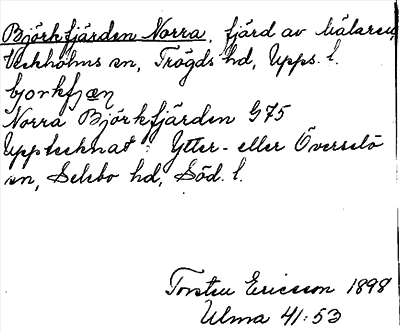 Björkfjärden Norra, fjärd av Mälaren,
Veckholms sn, Trögds hd, Upps. l.
bjorkfjæn
Norra Björkfjärden G75
Upptecknat i Ytter- eller Överselö
sn, Selebo hd, Söd. l.
Torsten Ericsson 1898
Ulma 41:53